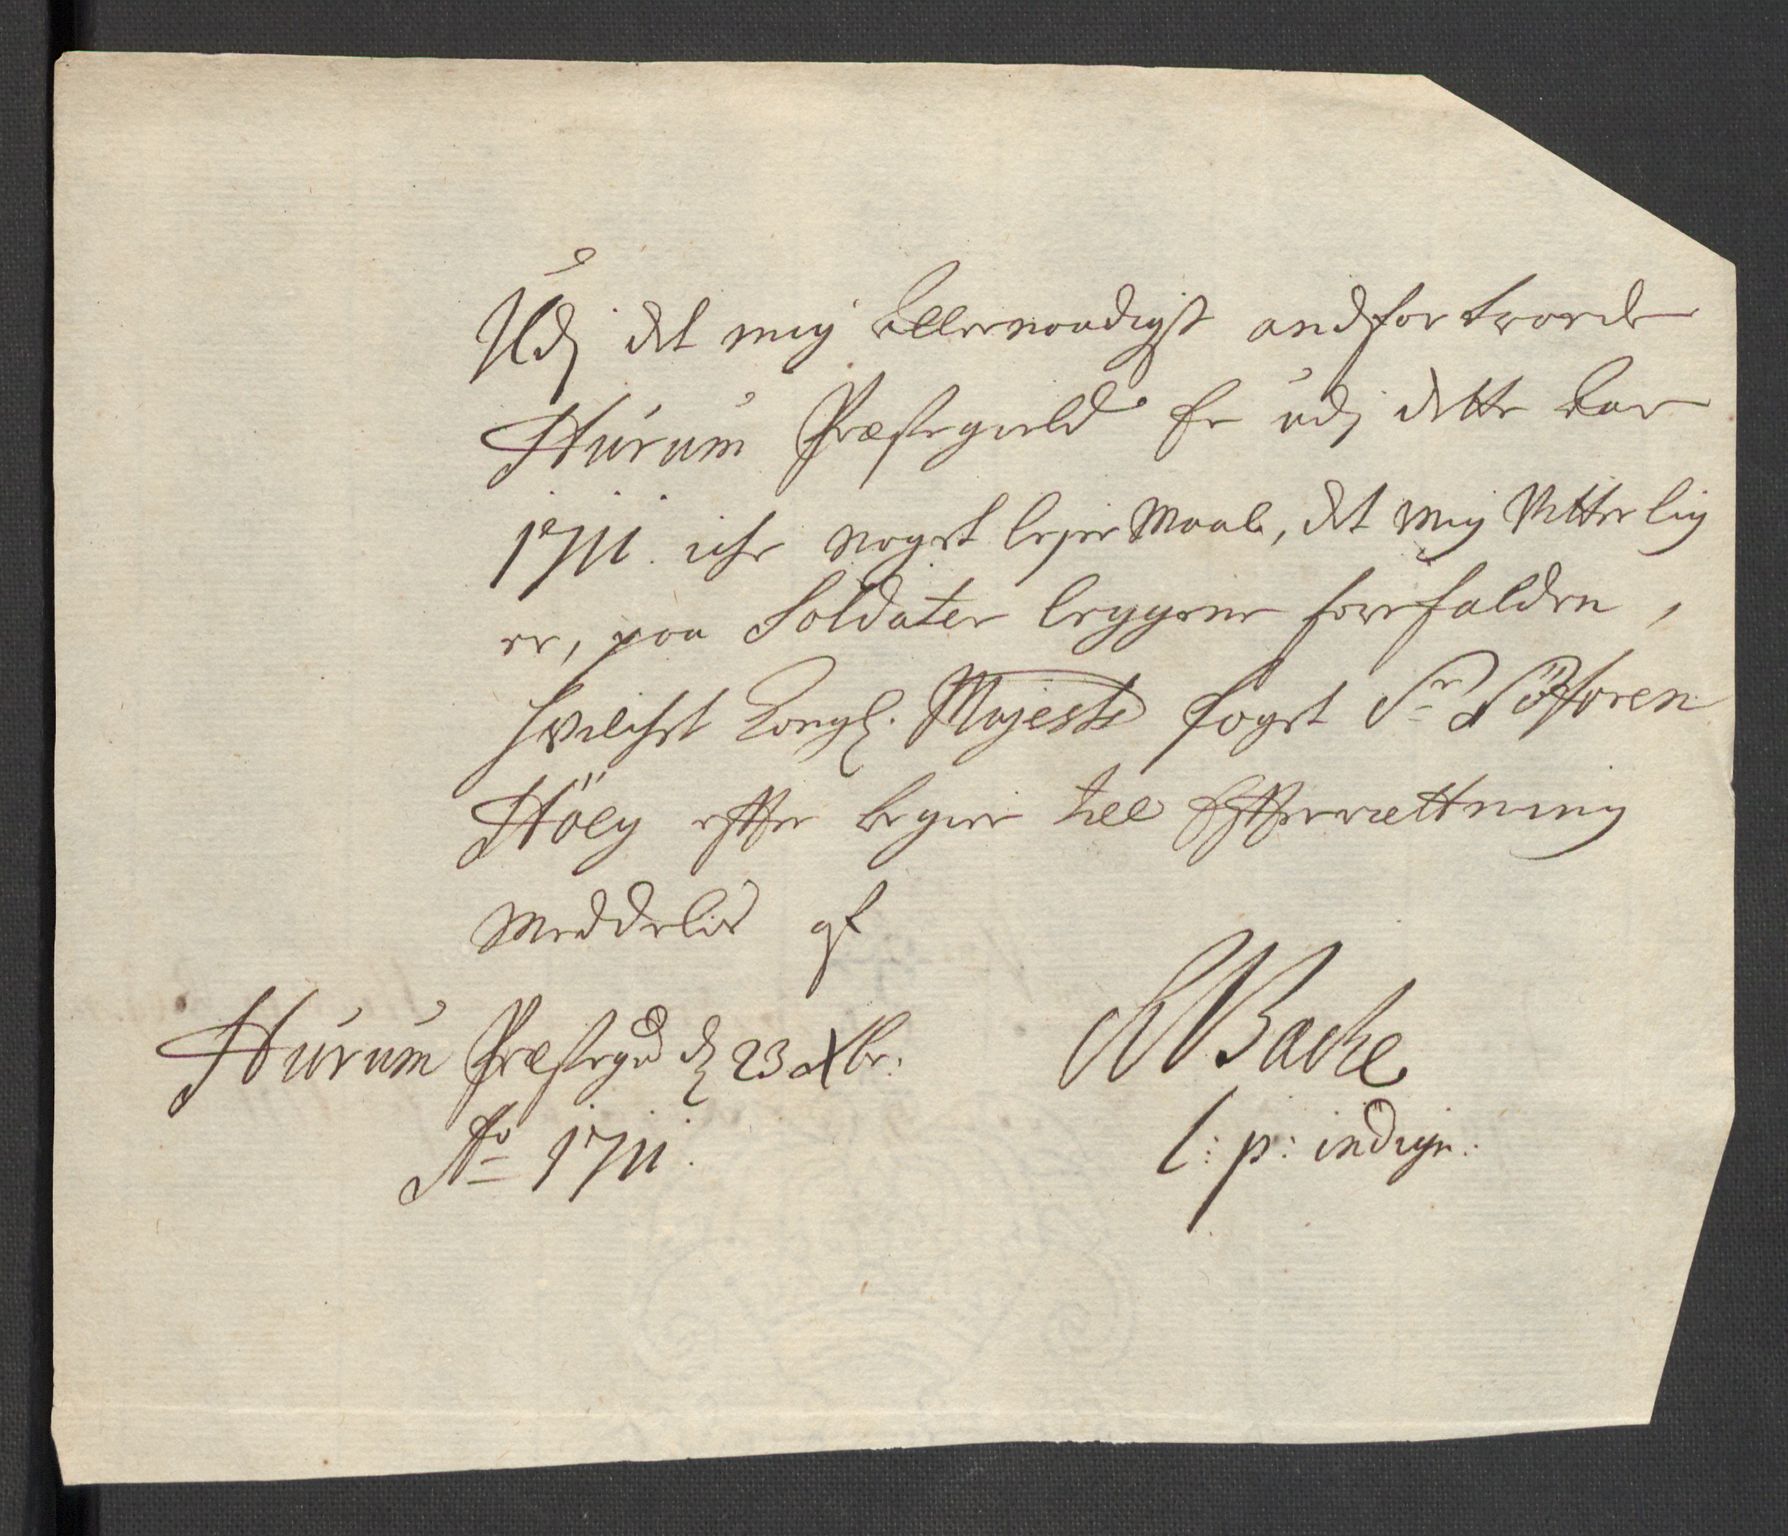 Udj det mig allernaadigst andfortroede
Hurum Præstegield er udj dette Aar
1711 iche noget lejermaal, det mig Vitterlig
er, paa Soldater leggerne forefalden,
hvilchet Kongl. Majests foget Sr Søfren
Höeg efter begier till Efterrættning
Meddelis af
Hurum Præstegd d 23 Xbr:
Ao 1711.
Bache
l: p: indign: